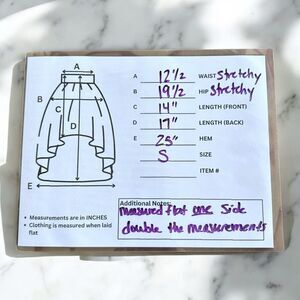 A
B
C
D
E
A 12 1/2 WAIST Stretchy
B 19 1/2 HIP Stretchy
C 14" LENGTH (FRONT)
D 17" LENGTH (BACK)
E 25" HEM
S SIZE
ITEM #
• Measurements are in INCHES
• Clothing is measured when laid
flat
Additional Notes:
measured flat one side
double the measurements